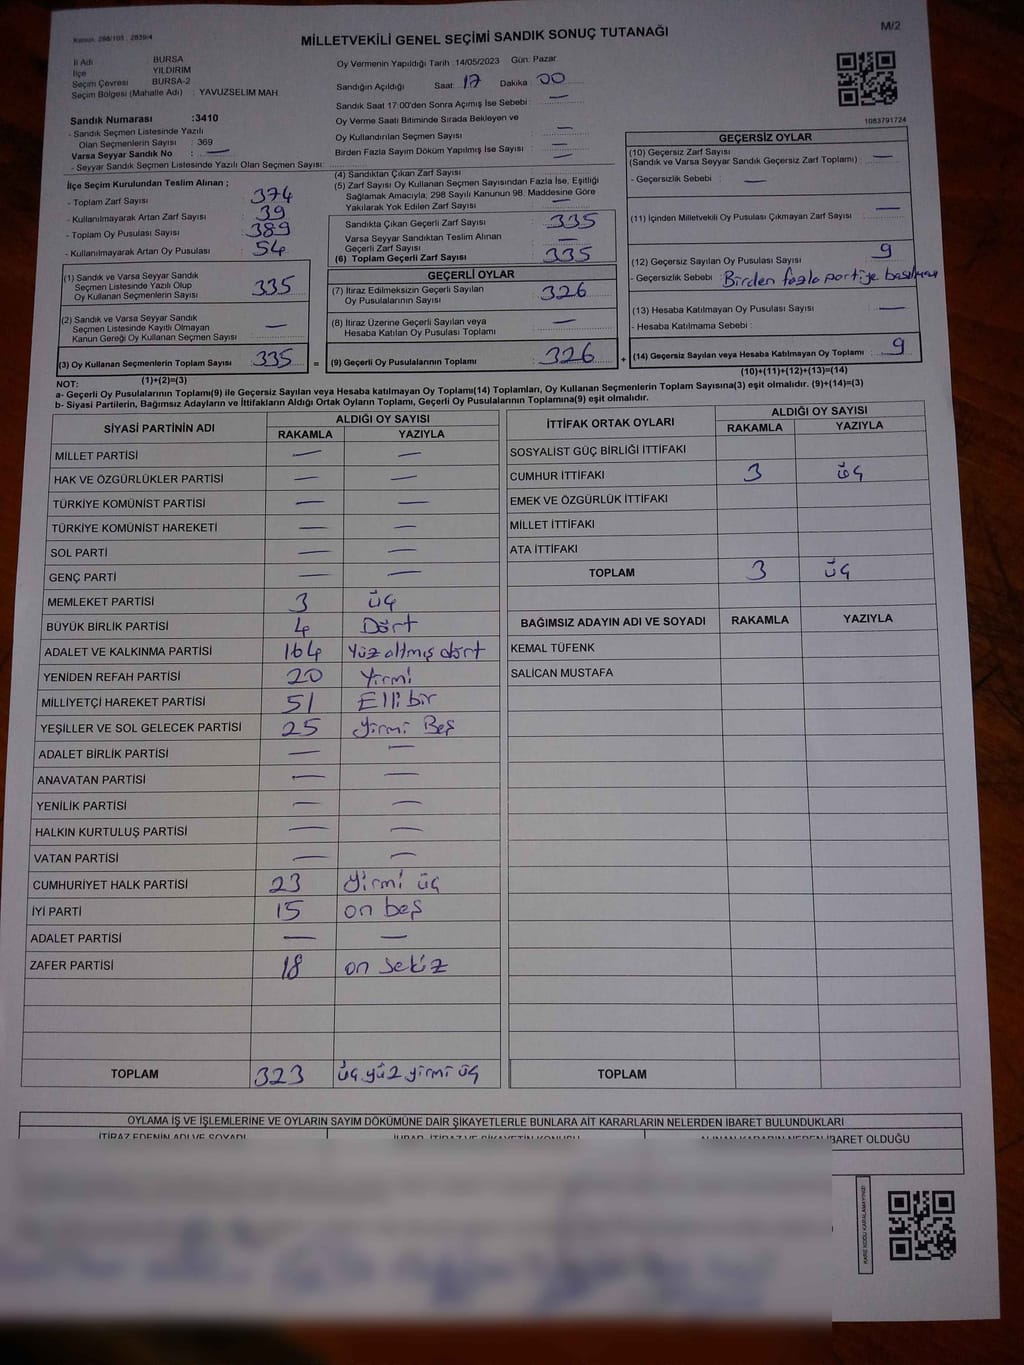 Kanun. 298/103 : 2839/4
MİLLETVEKİLİ GENEL SEÇİMİ SANDIK SONUÇ TUTANAĞI
M/2
İl Adı BURSA
İlçe YILDIRIM
Seçim Çevresi BURSA-2
Seçim Bölgesi (Mahalle Adı) : YAVUZSELIM MAH.
Sandık Numarası :3410
- Sandık Seçmen Listesinde Yazılı
Olan Seçmenlerin Sayısı : 369
Varsa Seyyar Sandık No : —
- Seyyar Sandık Seçmen Listesinde Yazılı Olan Seçmen Sayısı:
Oy Vermenin Yapıldığı Tarih :14/05/2023 Gün: Pazar
Sandığın Açıldığı Saat: 17 Dakika: 00
Sandık Saat 17:00'den Sonra Açımış İse Sebebi : —
Oy Verme Saati Bitiminde Sırada Bekleyen ve
Oy Kullandırılan Seçmen Sayısı : —
Birden Fazla Sayım Döküm Yapılmış İse Sayısı : —
1083791724
İlçe Seçim Kurulundan Teslim Alınan ;
- Toplam Zarf Sayısı : 374
- Kullanılmayarak Artan Zarf Sayısı : 39
- Toplam Oy Pusulası Sayısı : 389
- Kullanılmayarak Artan Oy Pusulası : 54
(1) Sandık ve Varsa Seyyar Sandık
Seçmen Listesinde Yazılı Olup
Oy Kullanan Seçmenlerin Sayısı 335
(2) Sandık ve Varsa Seyyar Sandık
Seçmen Listesinde Kayıtlı Olmayan
Kanun Gereği Oy Kullanan Seçmen Sayısı —
(3) Oy Kullanan Seçmenlerin Toplam Sayısı 335 =
(1)+(2)=(3)
(4) Sandıktan Çıkan Zarf Sayısı —
(5) Zarf Sayısı Oy Kullanan Seçmen Sayısından Fazla İse, Eşitliği
Sağlamak Amacıyla; 298 Sayılı Kanunun 98. Maddesine Göre
Yakılarak Yok Edilen Zarf Sayısı —
Sandıkta Çıkan Geçerli Zarf Sayısı 335
Varsa Seyyar Sandıktan Teslim Alınan
Geçerli Zarf Sayısı —
(6) Toplam Geçerli Zarf Sayısı 335
GEÇERLİ OYLAR
(7) İtiraz Edilmeksizin Geçerli Sayılan
Oy Pusulalarının Sayısı 326
(8) İtiraz Üzerine Geçerli Sayılan veya
Hesaba Katılan Oy Pusulası Toplamı —
(9) Geçerli Oy Pusulalarının Toplamı 326 +
GEÇERSİZ OYLAR
(10) Geçersiz Zarf Sayısı
(Sandık ve Varsa Seyyar Sandık Geçersiz Zarf Toplamı) : —
- Geçersizlik Sebebi : —
(11) İçinden Milletvekili Oy Pusulası Çıkmayan Zarf Sayısı —
(12) Geçersiz Sayılan Oy Pusulası Sayısı 9
- Geçersizlik Sebebi : Birden fazla partiye basılması
(13) Hesaba Katılmayan Oy Pusulası Sayısı —
- Hesaba Katılmama Sebebi :
(14) Geçersiz Sayılan veya Hesaba Katılmayan Oy Toplamı 9
(10)+(11)+(12)+(13)=(14)
NOT:
a- Geçerli Oy Pusulalarının Toplamı(9) ile Geçersiz Sayılan veya Hesaba katılmayan Oy Toplamı(14) Toplamları, Oy Kullanan Seçmenlerin Toplam Sayısına(3) eşit olmalıdır. (9)+(14)=(3)
b- Siyasi Partilerin, Bağımsız Adayların ve İttifakların Aldığı Ortak Oyların Toplamı, Geçerli Oy Pusulalarının Toplamına(9) eşit olmalıdır.
SİYASİ PARTİNİN ADI ALDIĞI OY SAYISI
RAKAMLA YAZIYLA
MİLLET PARTİSİ — —
HAK VE ÖZGÜRLÜKLER PARTİSİ — —
TÜRKİYE KOMÜNİST PARTİSİ — —
TÜRKİYE KOMÜNİST HAREKETİ — —
SOL PARTİ — —
GENÇ PARTİ — —
MEMLEKET PARTİSİ 3 üç
BÜYÜK BİRLİK PARTİSİ 4 Dört
ADALET VE KALKINMA PARTİSİ 164 Yüz altmış dört
YENİDEN REFAH PARTİSİ 20 Yirmi
MİLLİYETÇİ HAREKET PARTİSİ 51 Elli bir
YEŞİLLER VE SOL GELECEK PARTİSİ 25 Yirmi Beş
ADALET BİRLİK PARTİSİ — —
ANAVATAN PARTİSİ — —
YENİLİK PARTİSİ — —
HALKIN KURTULUŞ PARTİSİ — —
VATAN PARTİSİ — —
CUMHURİYET HALK PARTİSİ 23 Yirmi üç
İYİ PARTİ 15 on beş
ADALET PARTİSİ — —
ZAFER PARTİSİ 18 on sekiz
TOPLAM 323 üç yüz yirmi üç
İTTİFAK ORTAK OYLARI ALDIĞI OY SAYISI
RAKAMLA YAZIYLA
SOSYALİST GÜÇ BİRLİĞİ İTTİFAKI
CUMHUR İTTİFAKI 3 üç
EMEK VE ÖZGÜRLÜK İTTİFAKI
MİLLET İTTİFAKI
ATA İTTİFAKI
TOPLAM 3 üç
BAĞIMSIZ ADAYIN ADI VE SOYADI RAKAMLA YAZIYLA
KEMAL TÜFENK
SALİCAN MUSTAFA
TOPLAM
OYLAMA İŞ VE İŞLEMLERİNE VE OYLARIN SAYIM DÖKÜMÜNE DAİR ŞİKAYETLERLE BUNLARA AİT KARARLARIN NELERDEN İBARET BULUNDUKLARI
İTİRAZ EDENİN ADI VE SOYADI
İBARET OLDUĞU
KARE KODU KARALAMAYINIZ!